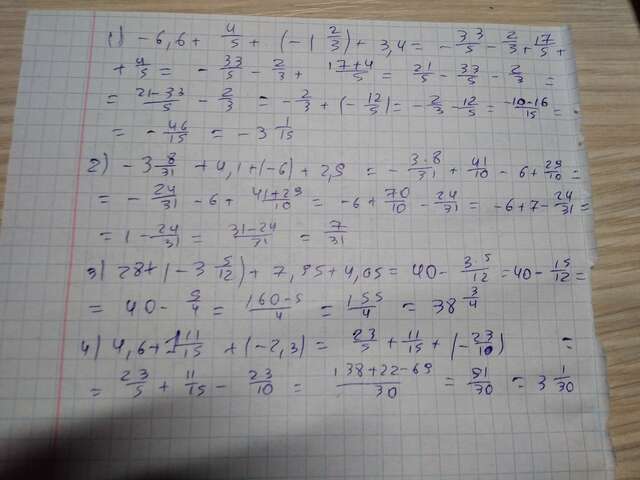 1) -6,6 + 4/5 + (-1 2/3) + 3,4 = - 33/5 - 2/3 + 17/5 +
+ 4/5 = - 33/5 - 2/3 + (17+4)/5 = 21/5 - 33/5 - 2/3 =
= (21-33)/5 - 2/3 = - 2/3 + (- 12/5) = - 2/3 - 12/5 = (-10-16)/15 =
= - 46/15 = -3 1/15
2) -3 8/31 + 4,1 + (-6) + 2,9 = - (3·8)/31 + 41/10 - 6 + 29/10 =
= - 24/31 - 6 + (41+29)/10 = -6 + 70/10 - 24/31 = -6+7- 24/31 =
= 1 - 24/31 = (31-24)/31 = 7/31
3) 28 + (-3 5/12) + 7,95 + 4,05 = 40 - (3·5)/12 = 40 - 15/12 =
= 40 - 5/4 = (160-5)/4 = 155/4 = 38 3/4
4) 4,6 + 11/15 + (-2,3) = 23/5 + 11/15 + (- 23/10) =
= 23/5 + 11/15 - 23/10 = (138+22-69)/30 = 91/30 = 3 1/30